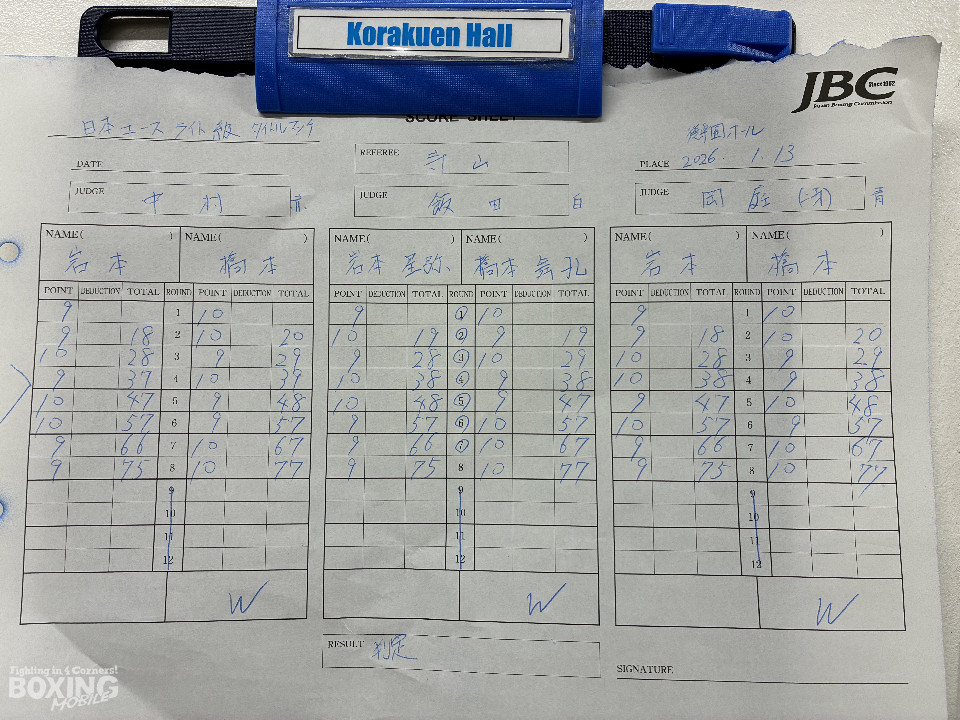 Korakuen Hall
JBC
Since 1952
Japan Boxing Commission
SCORE SHEET
日本ユース ライト級 タイトルマッチ
DATE
REFEREE 寺山
後楽園ホール
PLACE 2026. 1. 13
JUDGE 中村 赤
JUDGE 飯田 白
JUDGE 岡庭(淳) 青
NAME( ) NAME( ) NAME( ) NAME( ) NAME( ) NAME( )
岩本 橋本 岩本 星弥 橋本 舞孔 岩本 橋本
POINT DEDUCTION TOTAL ROUND POINT DEDUCTION TOTAL POINT DEDUCTION TOTAL ROUND POINT DEDUCTION TOTAL POINT DEDUCTION TOTAL ROUND POINT DEDUCTION TOTAL
9 1 10 9 1 10 9 1 10
9 18 2 10 20 10 19 2 9 19 9 18 2 10 20
10 28 3 9 29 9 28 3 10 29 10 28 3 9 29
9 37 4 10 39 10 38 4 9 38 10 38 4 9 38
10 47 5 9 48 10 48 5 9 47 9 47 5 10 48
10 57 6 9 57 9 57 6 10 57 10 57 6 9 57
9 66 7 10 67 9 66 7 10 67 9 66 7 10 67
9 75 8 10 77 9 75 8 10 77 9 75 8 10 77
9 9 9
10 10 10
11 11 11
12 12 12
W W W
RESULT 判定
SIGNATURE
Fighting in 4 Corners!
BOXING
MOBILE